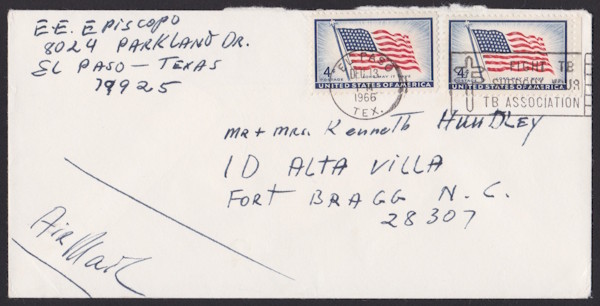 E.E. EPISCOPO
8024 PARKLAND DR.
EL PASO - TEXAS
79925
4¢
POSTAGE
UNITED STATES OF AMERICA
4¢
UNITED STATES OF AMERICA
EL PASO
DEC 13
1966
TEX.
FIGHT TB
SUPPORT YOUR
TB ASSOCIATION
MR + MRS. Kenneth HUNDLEY
1D ALTA VILLA
FORT BRAGG N.C.
28307
Air Mail